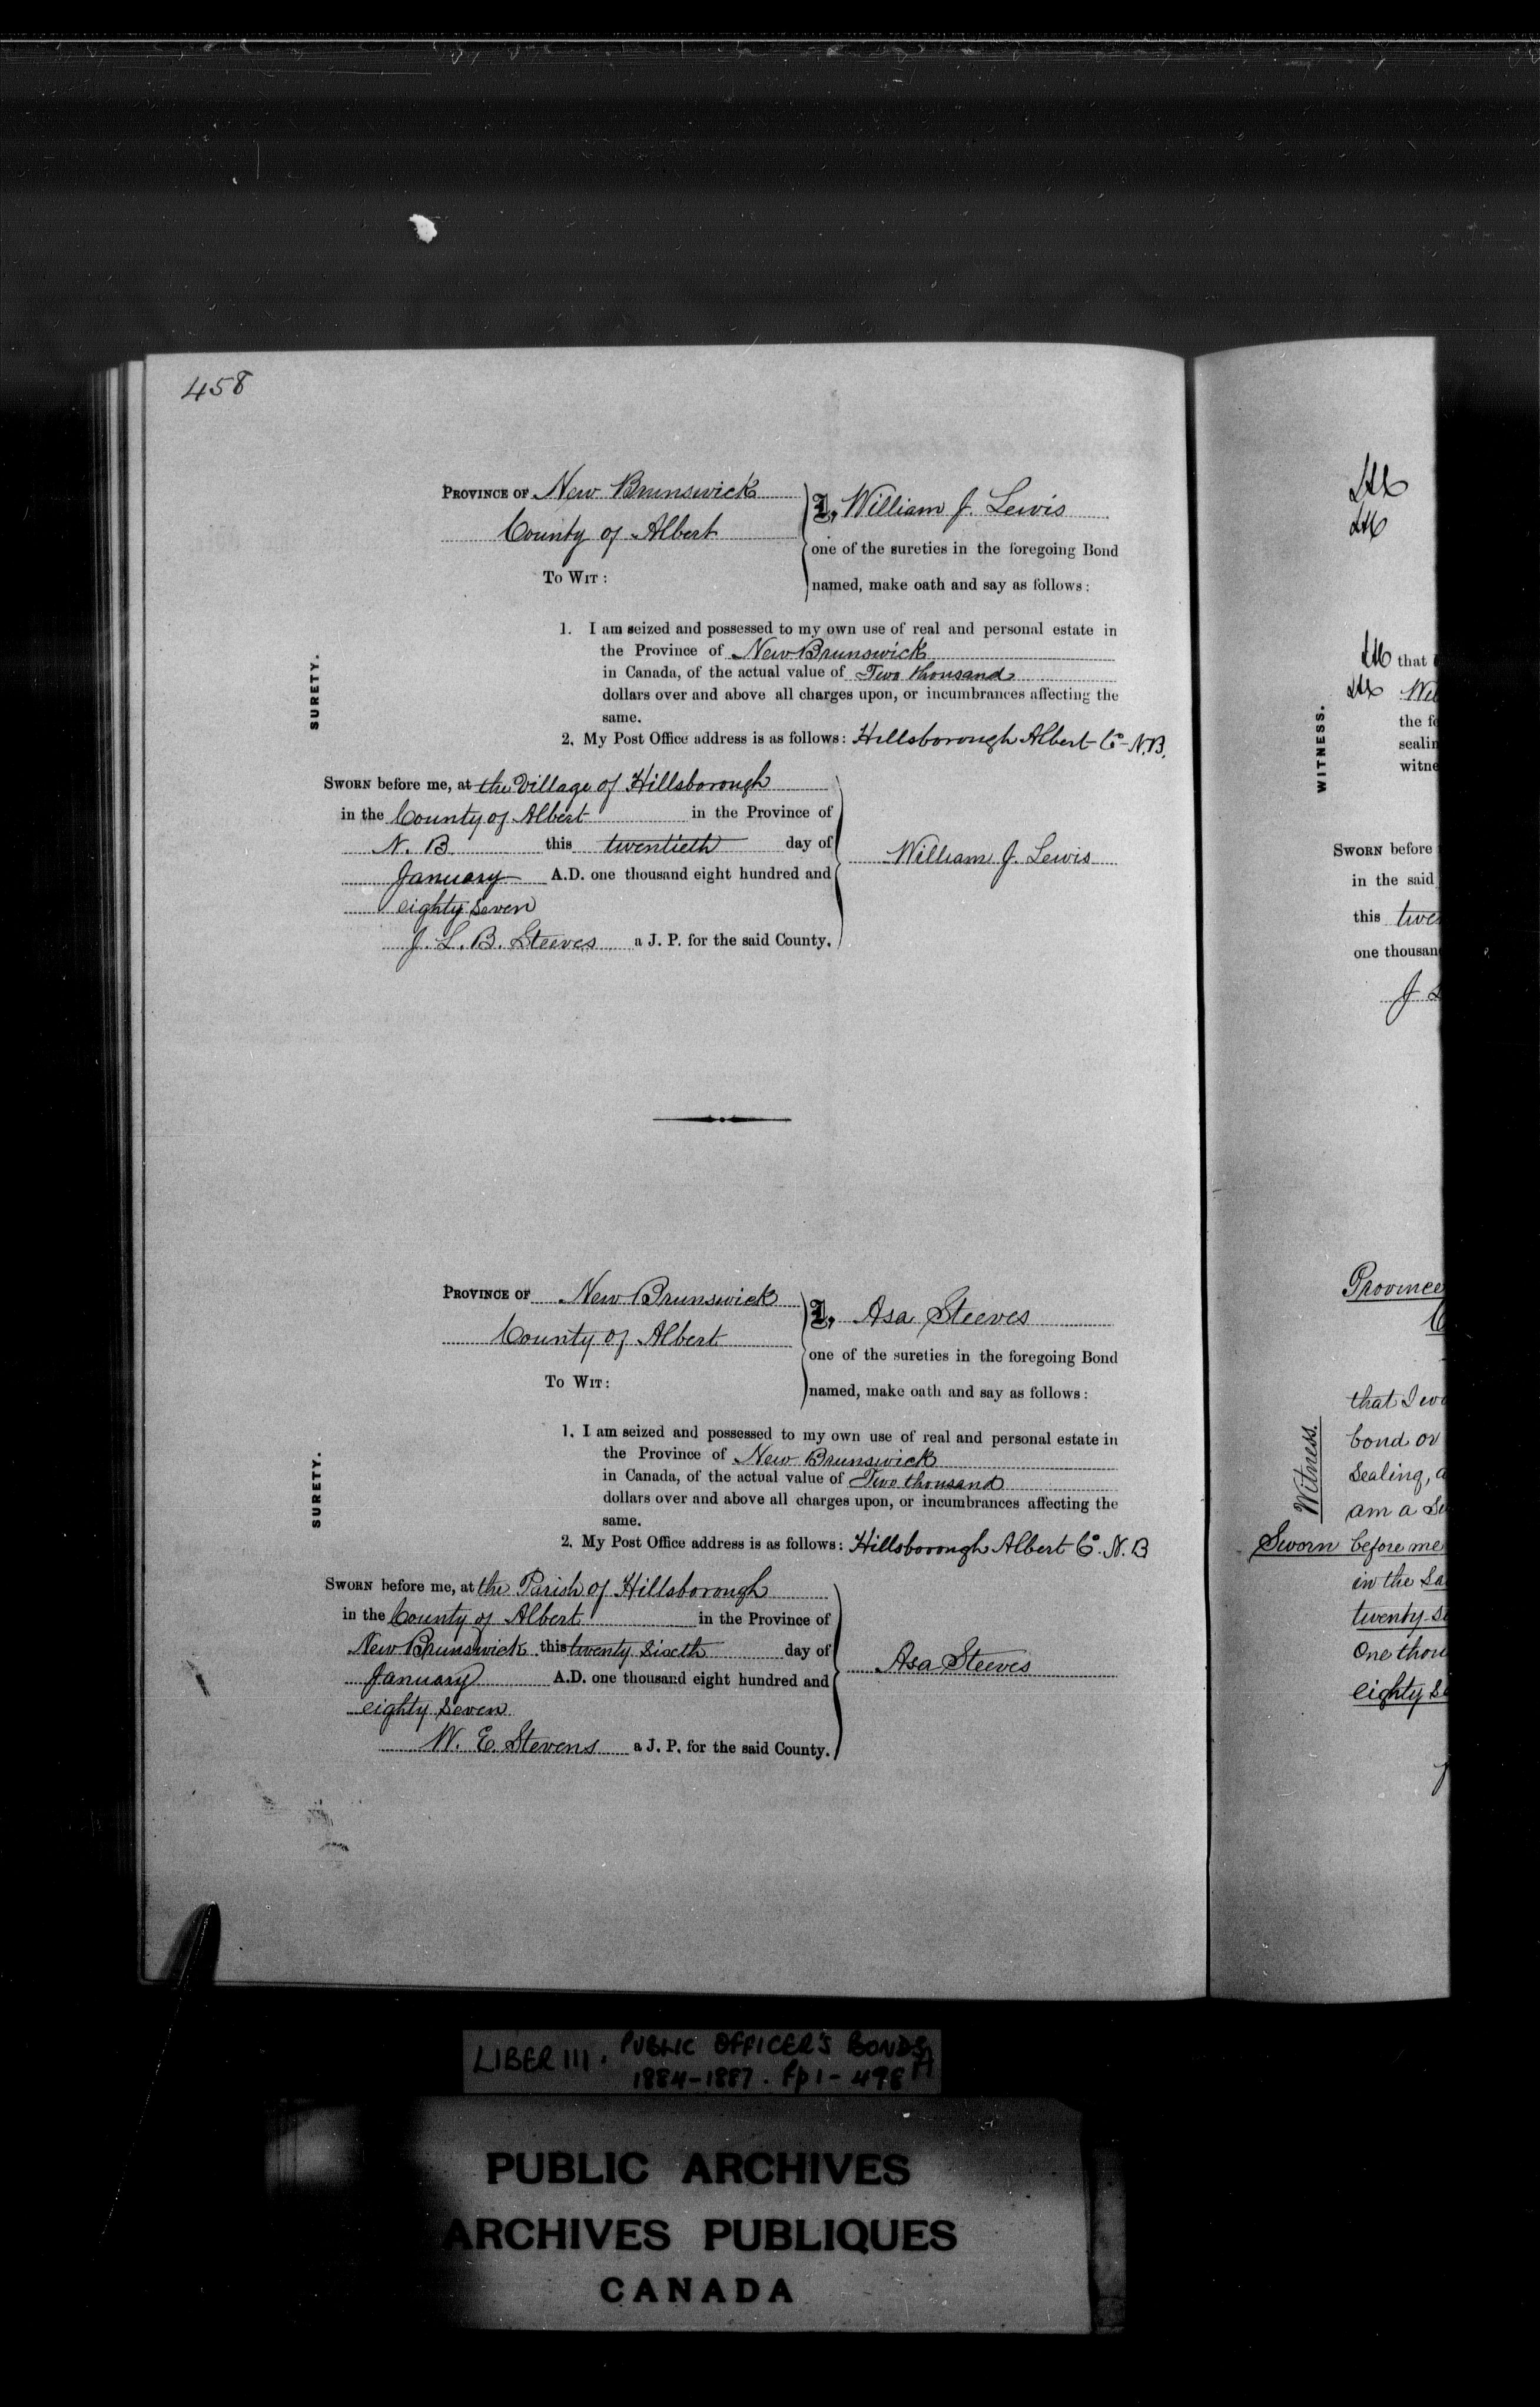 458
PROVINCE OF New Brunswick
County of Albert
TO WIT:
I, William J. Lewis
one of the sureties in the foregoing Bond
named, make oath and say as follows:
SURETY.
1. I am seized and possessed to my own use of real and personal estate in
the Province of New Brunswick
in Canada, of the actual value of Two thousand
dollars over and above all charges upon, or incumbrances affecting the
same.
2. My Post Office address is as follows: Hillsborough Albert Co. N.B.
SWORN before me, at the Village of Hillsborough
in the County of Albert in the Province of
N. B this twentieth day of
January A.D. one thousand eight hundred and
eighty seven
J. L. B. Steeves a J. P. for the said County.
William J. Lewis
PROVINCE OF New Brunswick
County of Albert
TO WIT:
I, Asa Steeves
one of the sureties in the foregoing Bond
named, make oath and say as follows:
SURETY.
1. I am seized and possessed to my own use of real and personal estate in
the Province of New Brunswick
in Canada, of the actual value of Two thousand
dollars over and above all charges upon, or incumbrances affecting the
same.
2. My Post Office address is as follows: Hillsborough Albert Co. N. B
SWORN before me, at the Parish of Hillsborough
in the County of Albert in the Province of
New Brunswick this twenty sixth day of
January A.D. one thousand eight hundred and
eighty seven
W. E. Stevens a J. P. for the said County.
Asa Steeves
that
the
WITNESS.
SWORN before
in the said
this
one thousan
J
Province
that I
bond or
Sealing,
am a
Witness.
Sworn before me
in the
twenty
One thou
eighty
LIBER III. PUBLIC OFFICER'S BONDS
1884-1887. pp 1-498
PUBLIC ARCHIVES
ARCHIVES PUBLIQUES
CANADA